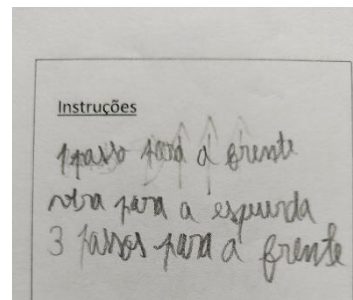 Instruções
1 passo para a frente
vira para a espuerda
3 passos para a frente